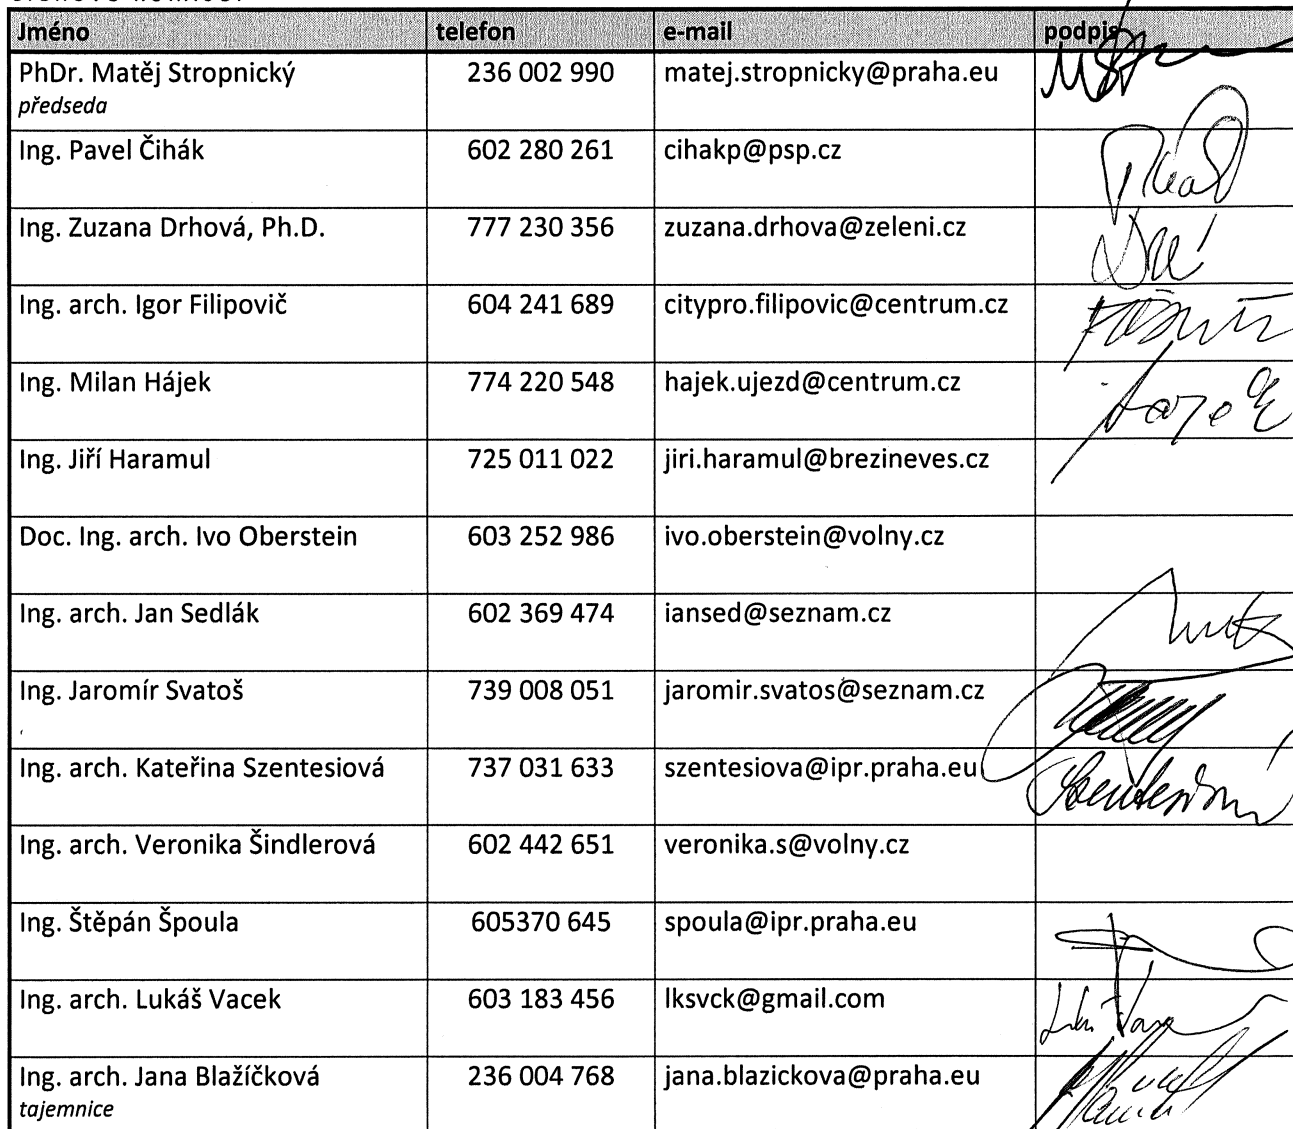 Jméno telefon e-mail podpis
PhDr. Matěj Stropnický 236 002 990 matej.stropnicky@praha.eu
předseda
Ing. Pavel Čihák 602 280 261 cihakp@psp.cz
Ing. Zuzana Drhová, Ph.D. 777 230 356 zuzana.drhova@zeleni.cz
Ing. arch. Igor Filipovič 604 241 689 citypro.filipovic@centrum.cz
Ing. Milan Hájek 774 220 548 hajek.ujezd@centrum.cz
Ing. Jiří Haramul 725 011 022 jiri.haramul@brezineves.cz
Doc. Ing. arch. Ivo Oberstein 603 252 986 ivo.oberstein@volny.cz
Ing. arch. Jan Sedlák 602 369 474 iansed@seznam.cz
Ing. Jaromír Svatoš 739 008 051 jaromir.svatos@seznam.cz
Ing. arch. Kateřina Szentesiová 737 031 633 szentesiova@ipr.praha.eu
Ing. arch. Veronika Šindlerová 602 442 651 veronika.s@volny.cz
Ing. Štěpán Špoula 605370 645 spoula@ipr.praha.eu
Ing. arch. Lukáš Vacek 603 183 456 lksvck@gmail.com
Ing. arch. Jana Blažíčková 236 004 768 jana.blazickova@praha.eu
tajemnice